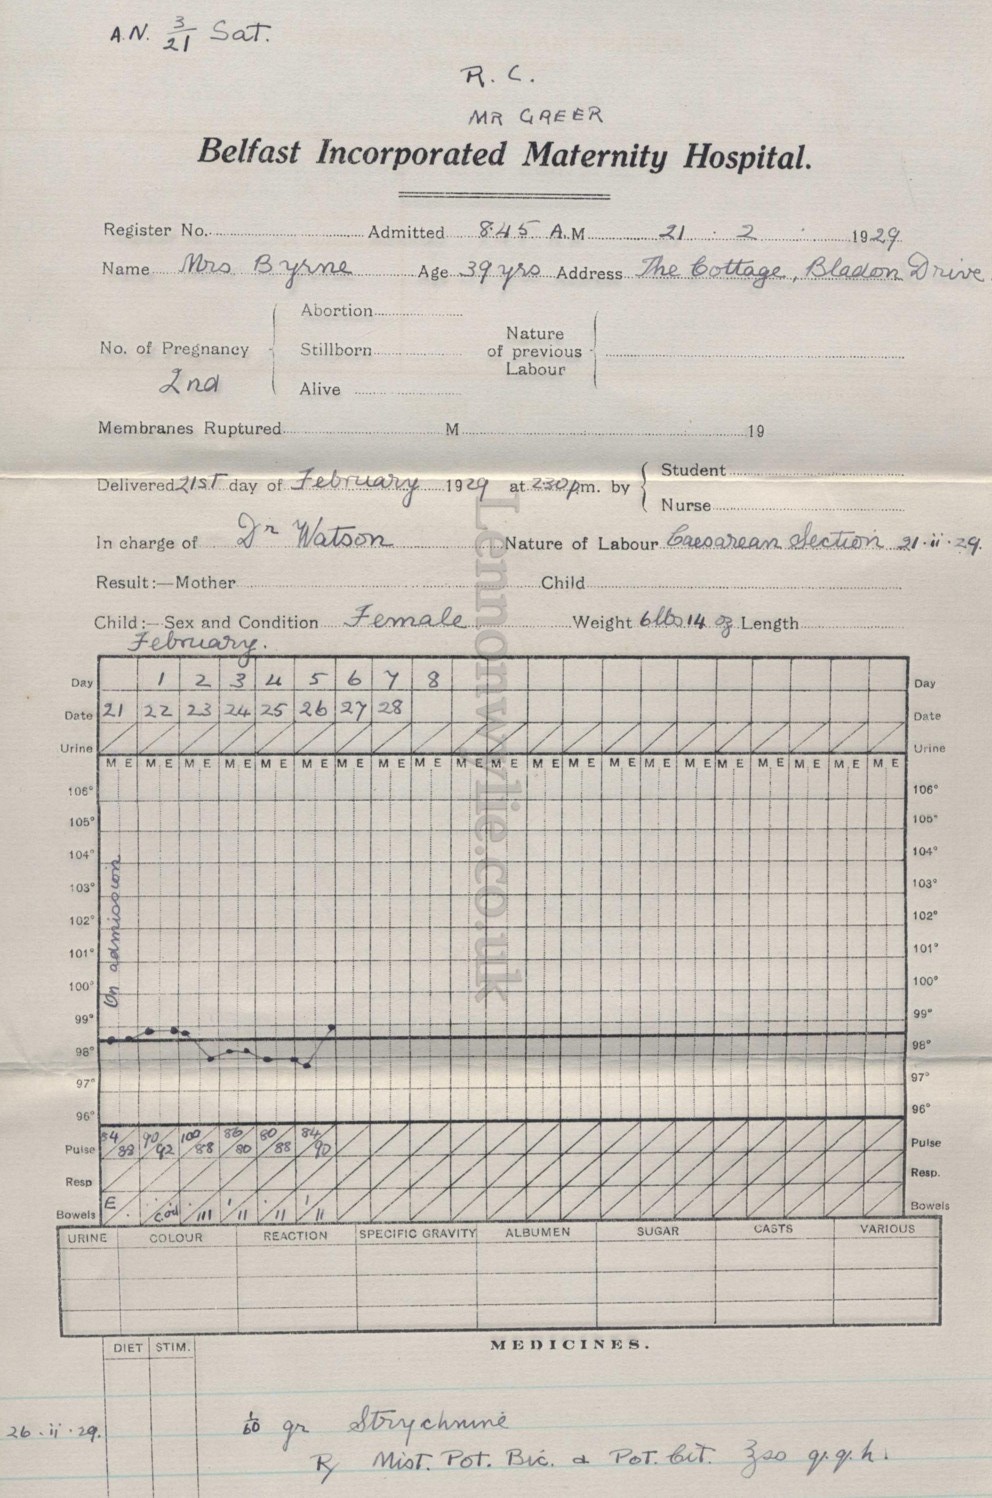 A.N. 3/21 Sat.
R. C.
MR GREER
Belfast Incorporated Maternity Hospital.
Register No. Admitted 8.45 A.M 21 . 2 . 1929
Name Mrs Byrne Age 39 yrs Address The Cottage, Bladon Drive
Abortion
Nature
No. of Pregnancy Stillborn of previous
Labour
2nd
Alive
Membranes Ruptured M 19
Student
Delivered 21st day of February 1929 at 2.30 p.m. by
Nurse
In charge of Dr Watson Nature of Labour Caesarean Section 21.ii.29.
Result:—Mother Child
Child:—Sex and Condition Female Weight 6lbs 14 oz Length
February.
Day 1 2 3 4 5 6 7 8 Day
Date 21 22 23 24 25 26 27 28 Date
Urine Urine
M E M E M E M E M E M E M E M E M E M E M E M E M E M E M E M E M E M E M E M E M E
106° 106°
105° 105°
104° 104°
103° 103°
102° 102°
101° 101°
100° 100°
On admission
99° 99°
98° 98°
97° 97°
96° 96°
Pulse 84/88 90/92 100/88 86/80 80/88 84/90 Pulse
Resp Resp.
Bowels E Bowels
URINE COLOUR REACTION SPECIFIC GRAVITY ALBUMEN SUGAR CASTS VARIOUS
DIET STIM. MEDICINES.
26.ii.29. 1/60 gr Strychnine
Rx Mist. Pot. Bic. & Pot. Cit. ℥ss q.q.h.
Lennonwylie.co.uk